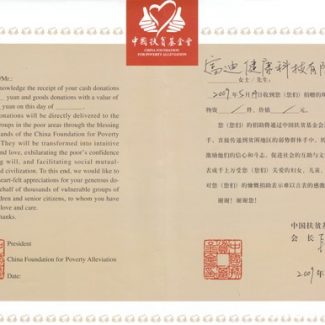 中國扶貧基金會
CHINA FOUNDATION
FOR POVERTY ALLEVIATION
/Mr.:
knowledge the receipt of your cash donations
yuan and goods donations with a value of
yuan on this day of
onations will be directly delivered to the
groups in the poor areas through the blessing
hands of the China Foundation for Poverty
They will be transformed into intuitive
and love, exhilarating the poor's confidence
ng will, and facilitating social mutual-
d civilization. To this end, we would like to
heart-felt appreciations for your generous do-
behalf of thousands of vulnerable groups of
ldren and senior citizens, to whom you have
love and care.
hanks.
President
China Foundation for Poverty Alleviation
Date:
富迪健康科技有限
女士/先生:
2009年5月19日收到您(您们)捐赠的
物资 / 件,价值 / 元。
您(您们)的捐助将通过中国扶贫基金会
手,直接传递到贫困地区的弱势群体手中,
激励他们的信心和斗志,促进社会的互助与文
表成千上万受您(您们)关爱的妇女、儿童、
对您(您们)的慷慨捐助表示难以言表的感激
谢谢!谢谢您!
中国扶贫基
会 长
2009年